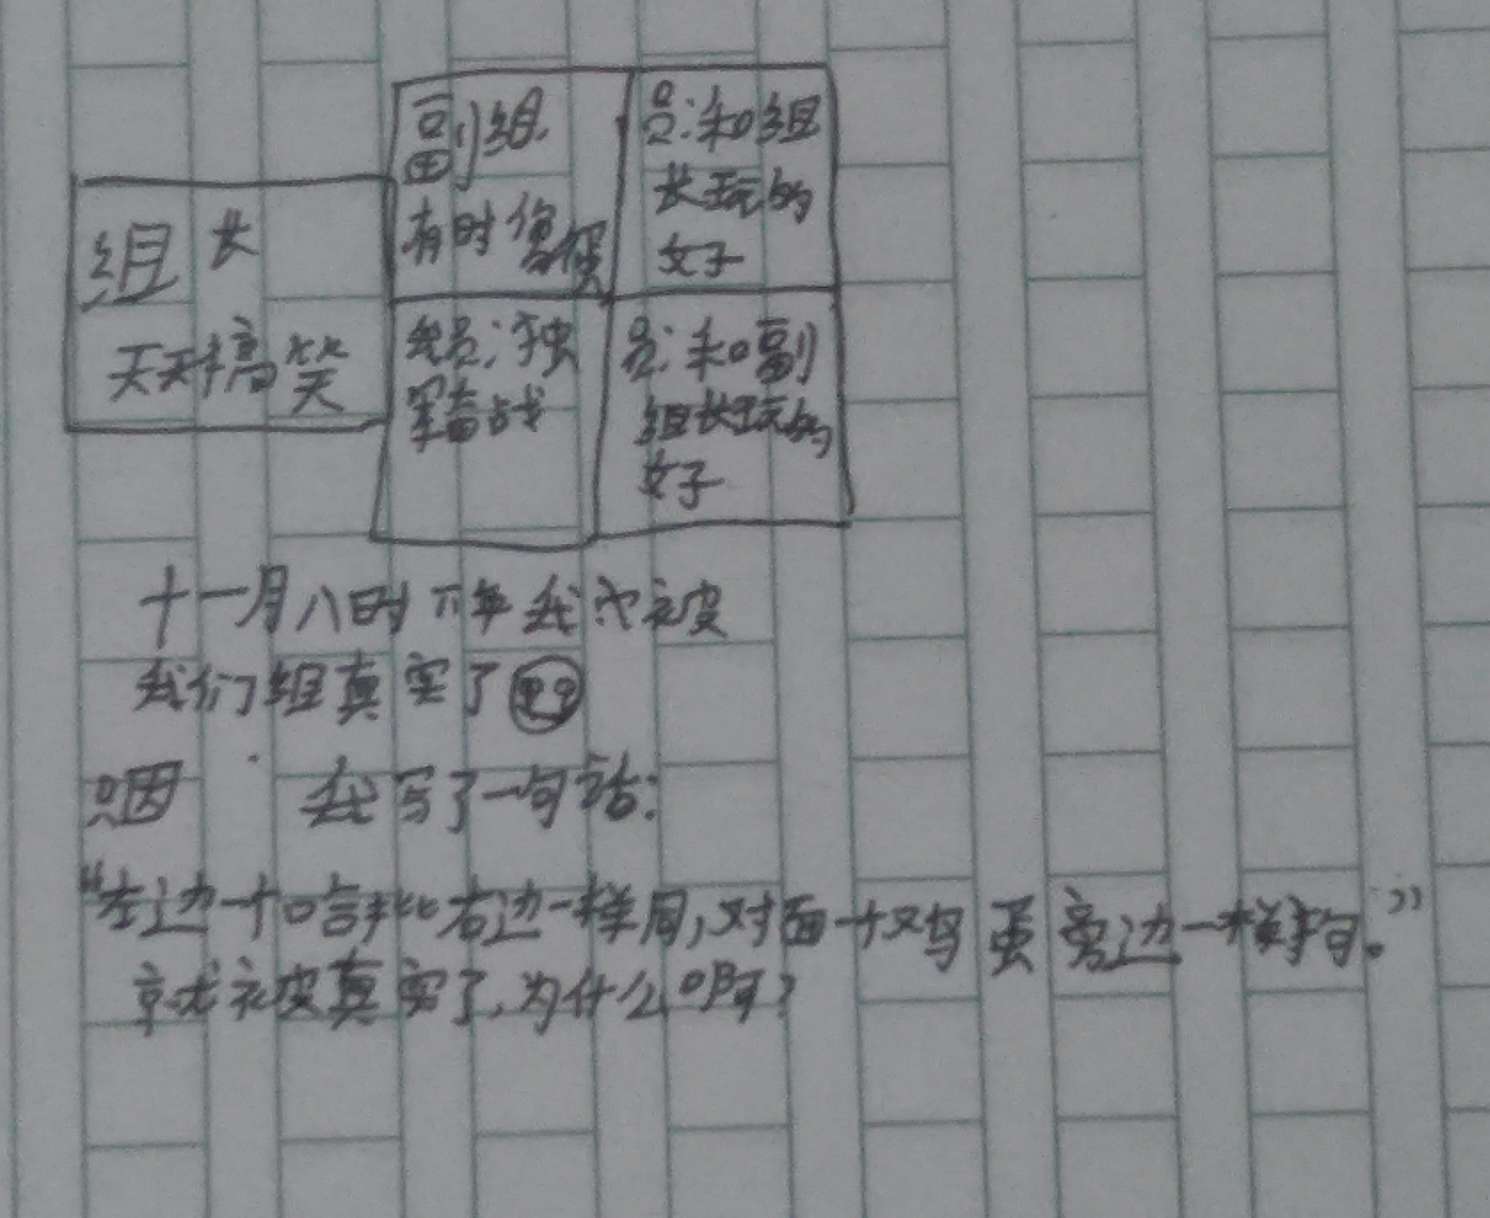 组长
天天搞笑
副组
有时傻
员:和组
长玩的
女子
组员:独
军奋战
员:和副
组长玩的
女子
十一月八时下午我又被
我们组真实了
咽 我写了一句话:
“左边一十口合批右边一样局,对面一十又鸟蛋旁边一样狗。”
就被真实了,为什么啊?